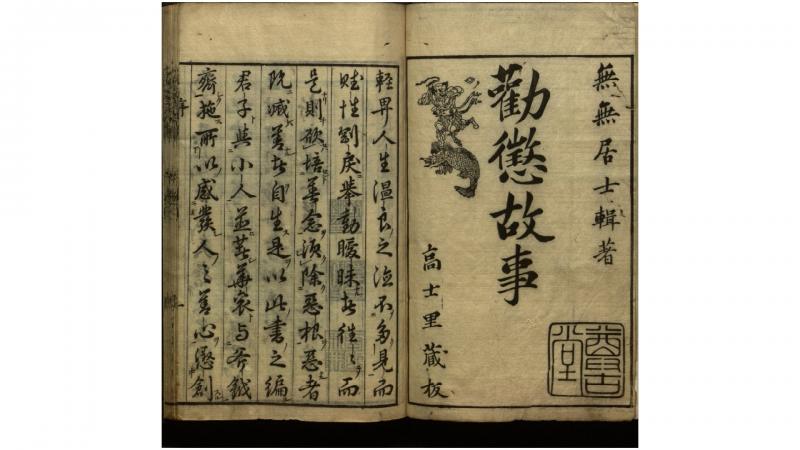 無無居士輯著
勸懲故事
高士里藏板
輕畀人生温良之法不多見而
賦性剛戾擧動曖昧者往〻而
是則欲培善念須除惡根惡者
既滅善者自生是以此書之編
君子與小人並著華衮与斧鉞
齊施所以感發人之善心懲創
序